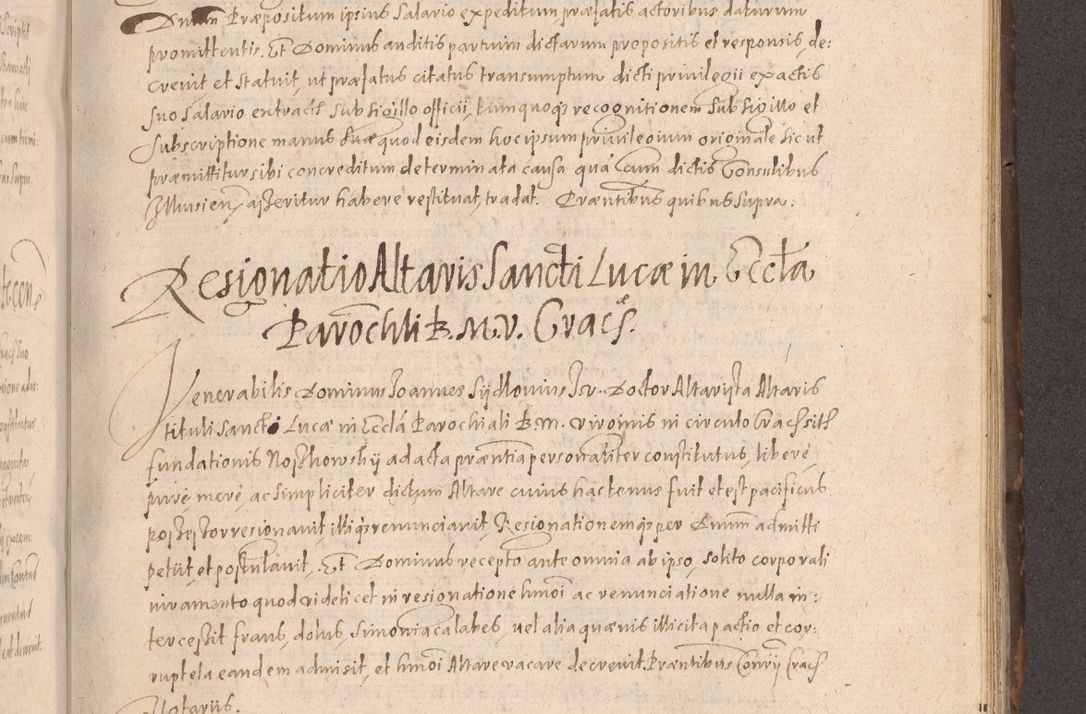 Dnum Præpositum ipsius salario expeditum præfatis actoribus daturum
promittentis. Et Dominus auditis partium dictarum propositis et responsis, de:
crevit et statuit, ut præfatus citatus transumptum dicti privilegii exactis
suo salario extractis sub sigillo officii, tum quoqs recognitionem sub sigillo et
subscriptione manus suæ quod eisdem hoc ipsum privilegium originale sic ut
præmittitur sibi concreditum determinata causa quâ cum dictis Consulibus
asseritur habere restituat, tradat. Præntibus quibus supra.
Resignatio Altaris Sancti Lucæ in Eccła
Parochłi B. M. V. Cracs.
Venerabilis Dominus Joannes Sydlovius J. V. Doctor Altarista Altaris
tituli Sancti Lucæ in Ecclâ Parochiali B. M. Virginis in circulo Cracs sitæ
fundationis Noskowskij ad acta præntia personaliter constitutus, liberè,
purè, merè, ac simpliciter dictum Altare cuius hactenus fuit et est pacificus
possessor resignavit illiqs renunciavit, Resignationemqs per Dnum admitti
petiit, et postulavit. Et Dominus recepto ante omnia ab ipso, solito corporali
iuramento quod videlicet in resignatione hmoi ac renunciatione nulla in:
tercessit fraus, dolus, simoniaca labes, vel alia quævis illicita pactio et cor:
ruptela eandem admisit, et hmoi Altare vacare decrevit. Præntibus Cracs
Notariis.